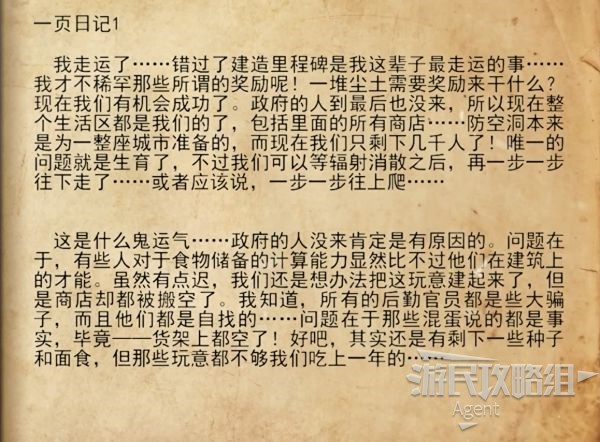 一页日记1
我走运了……错过了建造里程碑是我这辈子最走运的事……
我才不稀罕那些所谓的奖励呢！一堆尘土需要奖励来干什么？
现在我们有机会成功了。政府的人到最后也没来，所以现在整
个生活区都是我们的了，包括里面的所有商店……防空洞本来
是为一整座城市准备的，而现在我们只剩下几千人了！唯一的
问题就是生育了，不过我们可以等辐射消散之后，再一步一步
往下走了……或者应该说，一步一步往上爬……
这是什么鬼运气……政府的人没来肯定是有原因的。问题在
于，有些人对于食物储备的计算能力显然比不过他们在建筑上
的才能。虽然有点迟，我们还是想办法把这玩意建起来了，但
是商店却都被搬空了。我知道，所有的后勤官员都是些大骗
子，而且他们都是自找的……问题在于那些混蛋说的都是事
实，毕竟——货架上都空了！好吧，其实还是有剩下一些种子
和面食，但那些玩意都不够我们吃上一年的……
游民攻略组
Agent